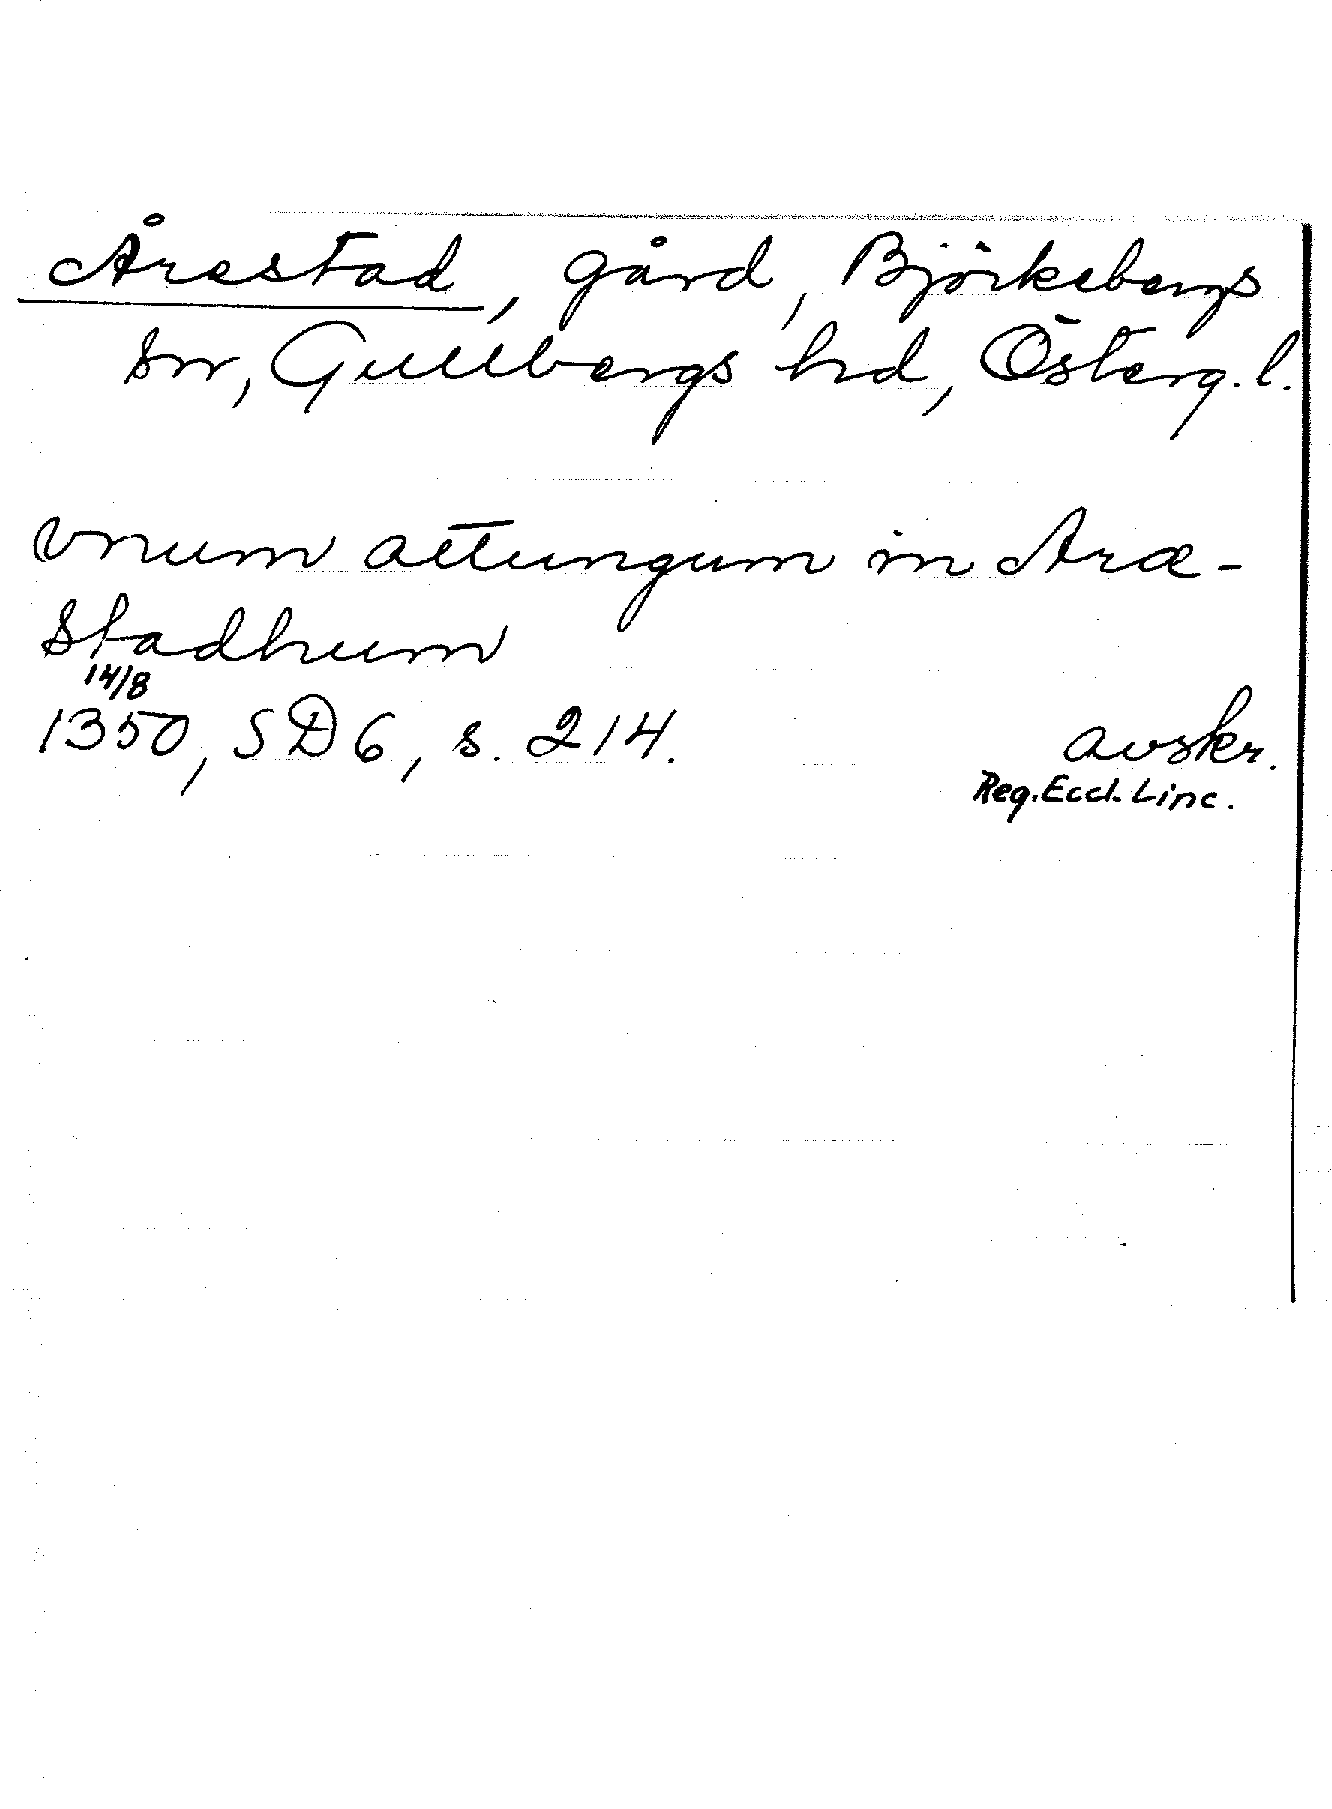 Årestad, gård, Björkebergs
sn, Gullbergs hd, Österg. l.
vnum attungum in Aræ-
stadhum
14/8
1350, SD 6, s. 214. avskr.
Reg. Eccl. Linc.